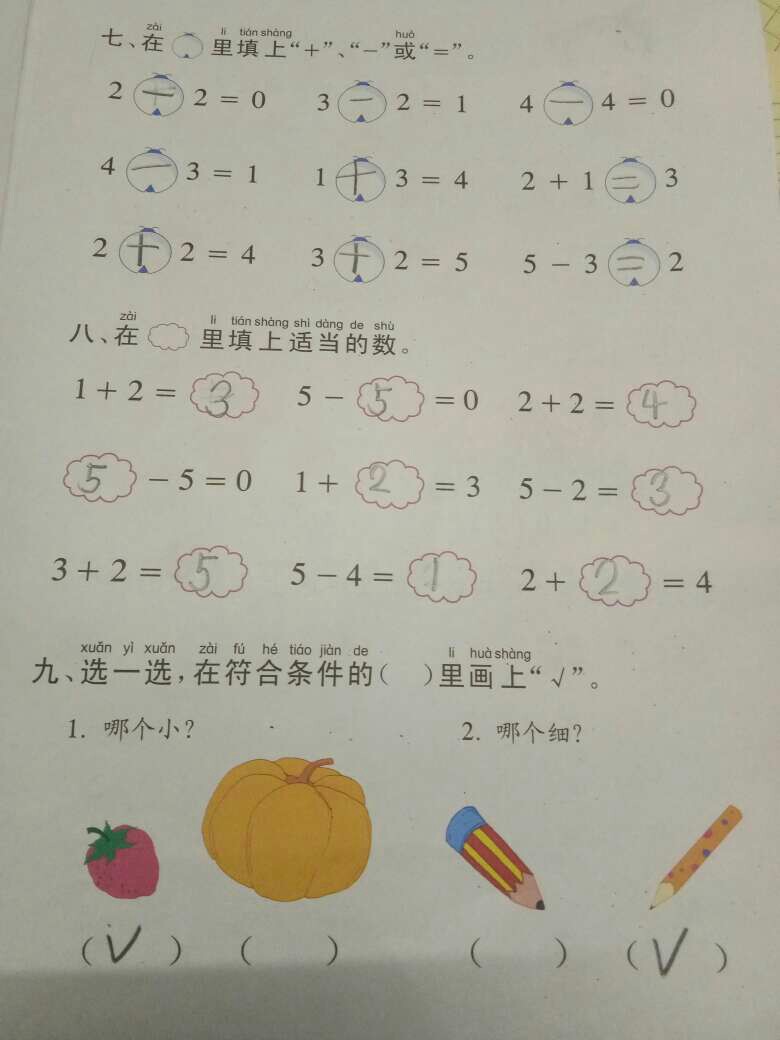 zài lǐ tián shàng huò
七、在 里填上“+”、“−”或“=”。
2 − 2 = 0 3 − 2 = 1 4 − 4 = 0
4 − 3 = 1 1 + 3 = 4 2 + 1 = 3
2 + 2 = 4 3 + 2 = 5 5 − 3 = 2
zài lǐ tián shàng shì dàng de shù
八、在 里填上适当的数。
1 + 2 = 3 5 − 5 = 0 2 + 2 = 4
5 − 5 = 0 1 + 2 = 3 5 − 2 = 3
3 + 2 = 5 5 − 4 = 1 2 + 2 = 4
xuǎn yì xuǎn zài fú hé tiáo jiàn de lǐ huà shàng
九、选一选,在符合条件的( )里画上“√”。
1. 哪个小? 2. 哪个细?
(√) ( ) ( ) (√)